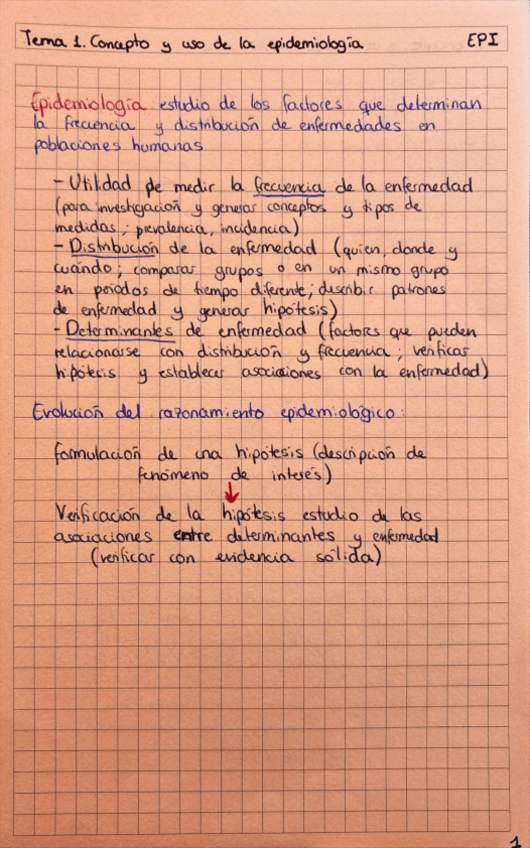 Tema 1. Concepto y uso de la epidemiología EPI
Epidemiología estudio de los factores que determinan
la frecuencia y distribución de enfermedades en
poblaciones humanas
- Utilidad de medir la frecuencia de la enfermedad
(para investigación y generar conceptos y tipos de
medidas; prevalencia, incidencia)
- Distribución de la enfermedad (quien, donde y
cuándo; comparar grupos o en un mismo grupo
en periodos de tiempo diferente; describir patrones
de enfermedad y generar hipótesis)
- Determinantes de enfermedad (factores que pueden
relacionarse con distribución y frecuencia; verificar
hipótesis y establecer asociaciones con la enfermedad)
Evolución del razonamiento epidemiológico:
formulación de una hipótesis (descripción de
fenómeno de interés)
↓
Verificación de la hipótesis estudio de las
asociaciones entre determinantes y enfermedad
(verificar con evidencia sólida)
1